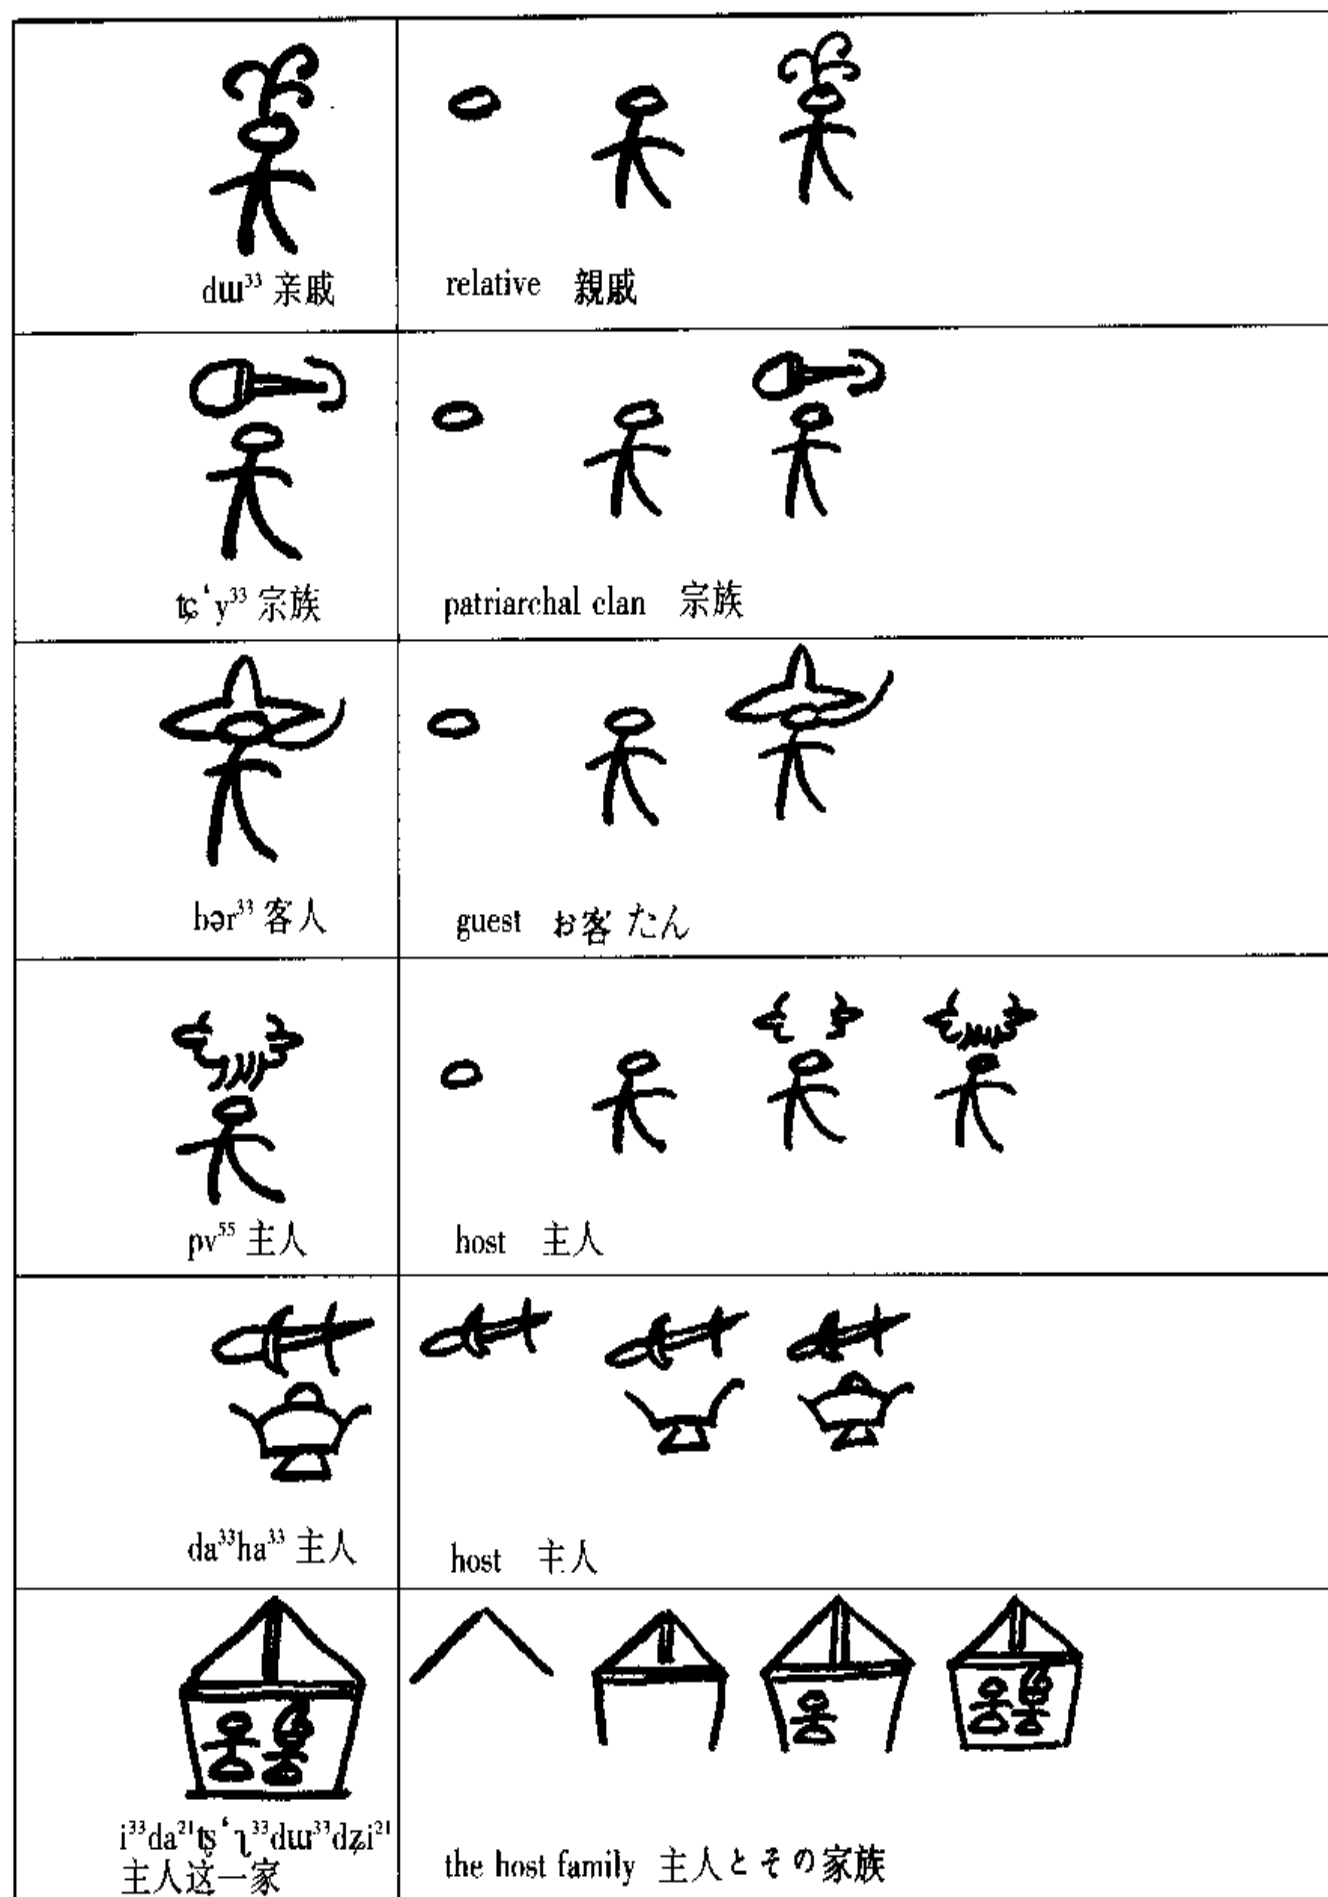 dɯ³³ 亲戚
relative 親戚
tɕ‘y³³ 宗族
patriarchal clan 宗族
bər³³ 客人
guest お客 たん
pv⁵⁵ 主人
host 主人
da³³ha³³ 主人
host 主人
i³³da²¹tʂ‘ʅ³³dɯ³³dʑi²¹
主人这一家
the host family 主人とその家族